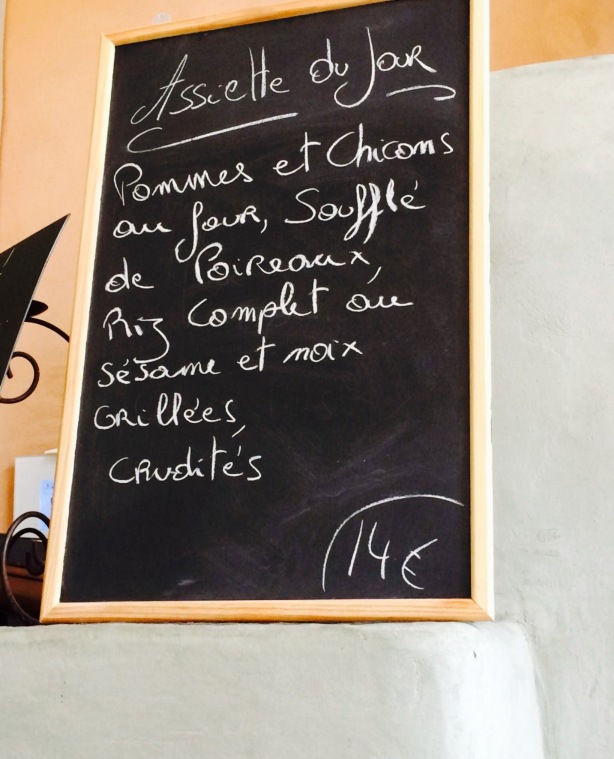 Assiette du Jour
Pommes et Chicons
au four, Soufflé
de Poireaux,
Riz Complet au
sésame et noix
Grillées,
Crudités
14€